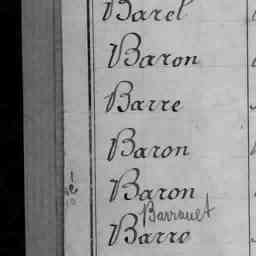 Barel
Baron
Barre
Baron
Baron
Barrauet
Barro